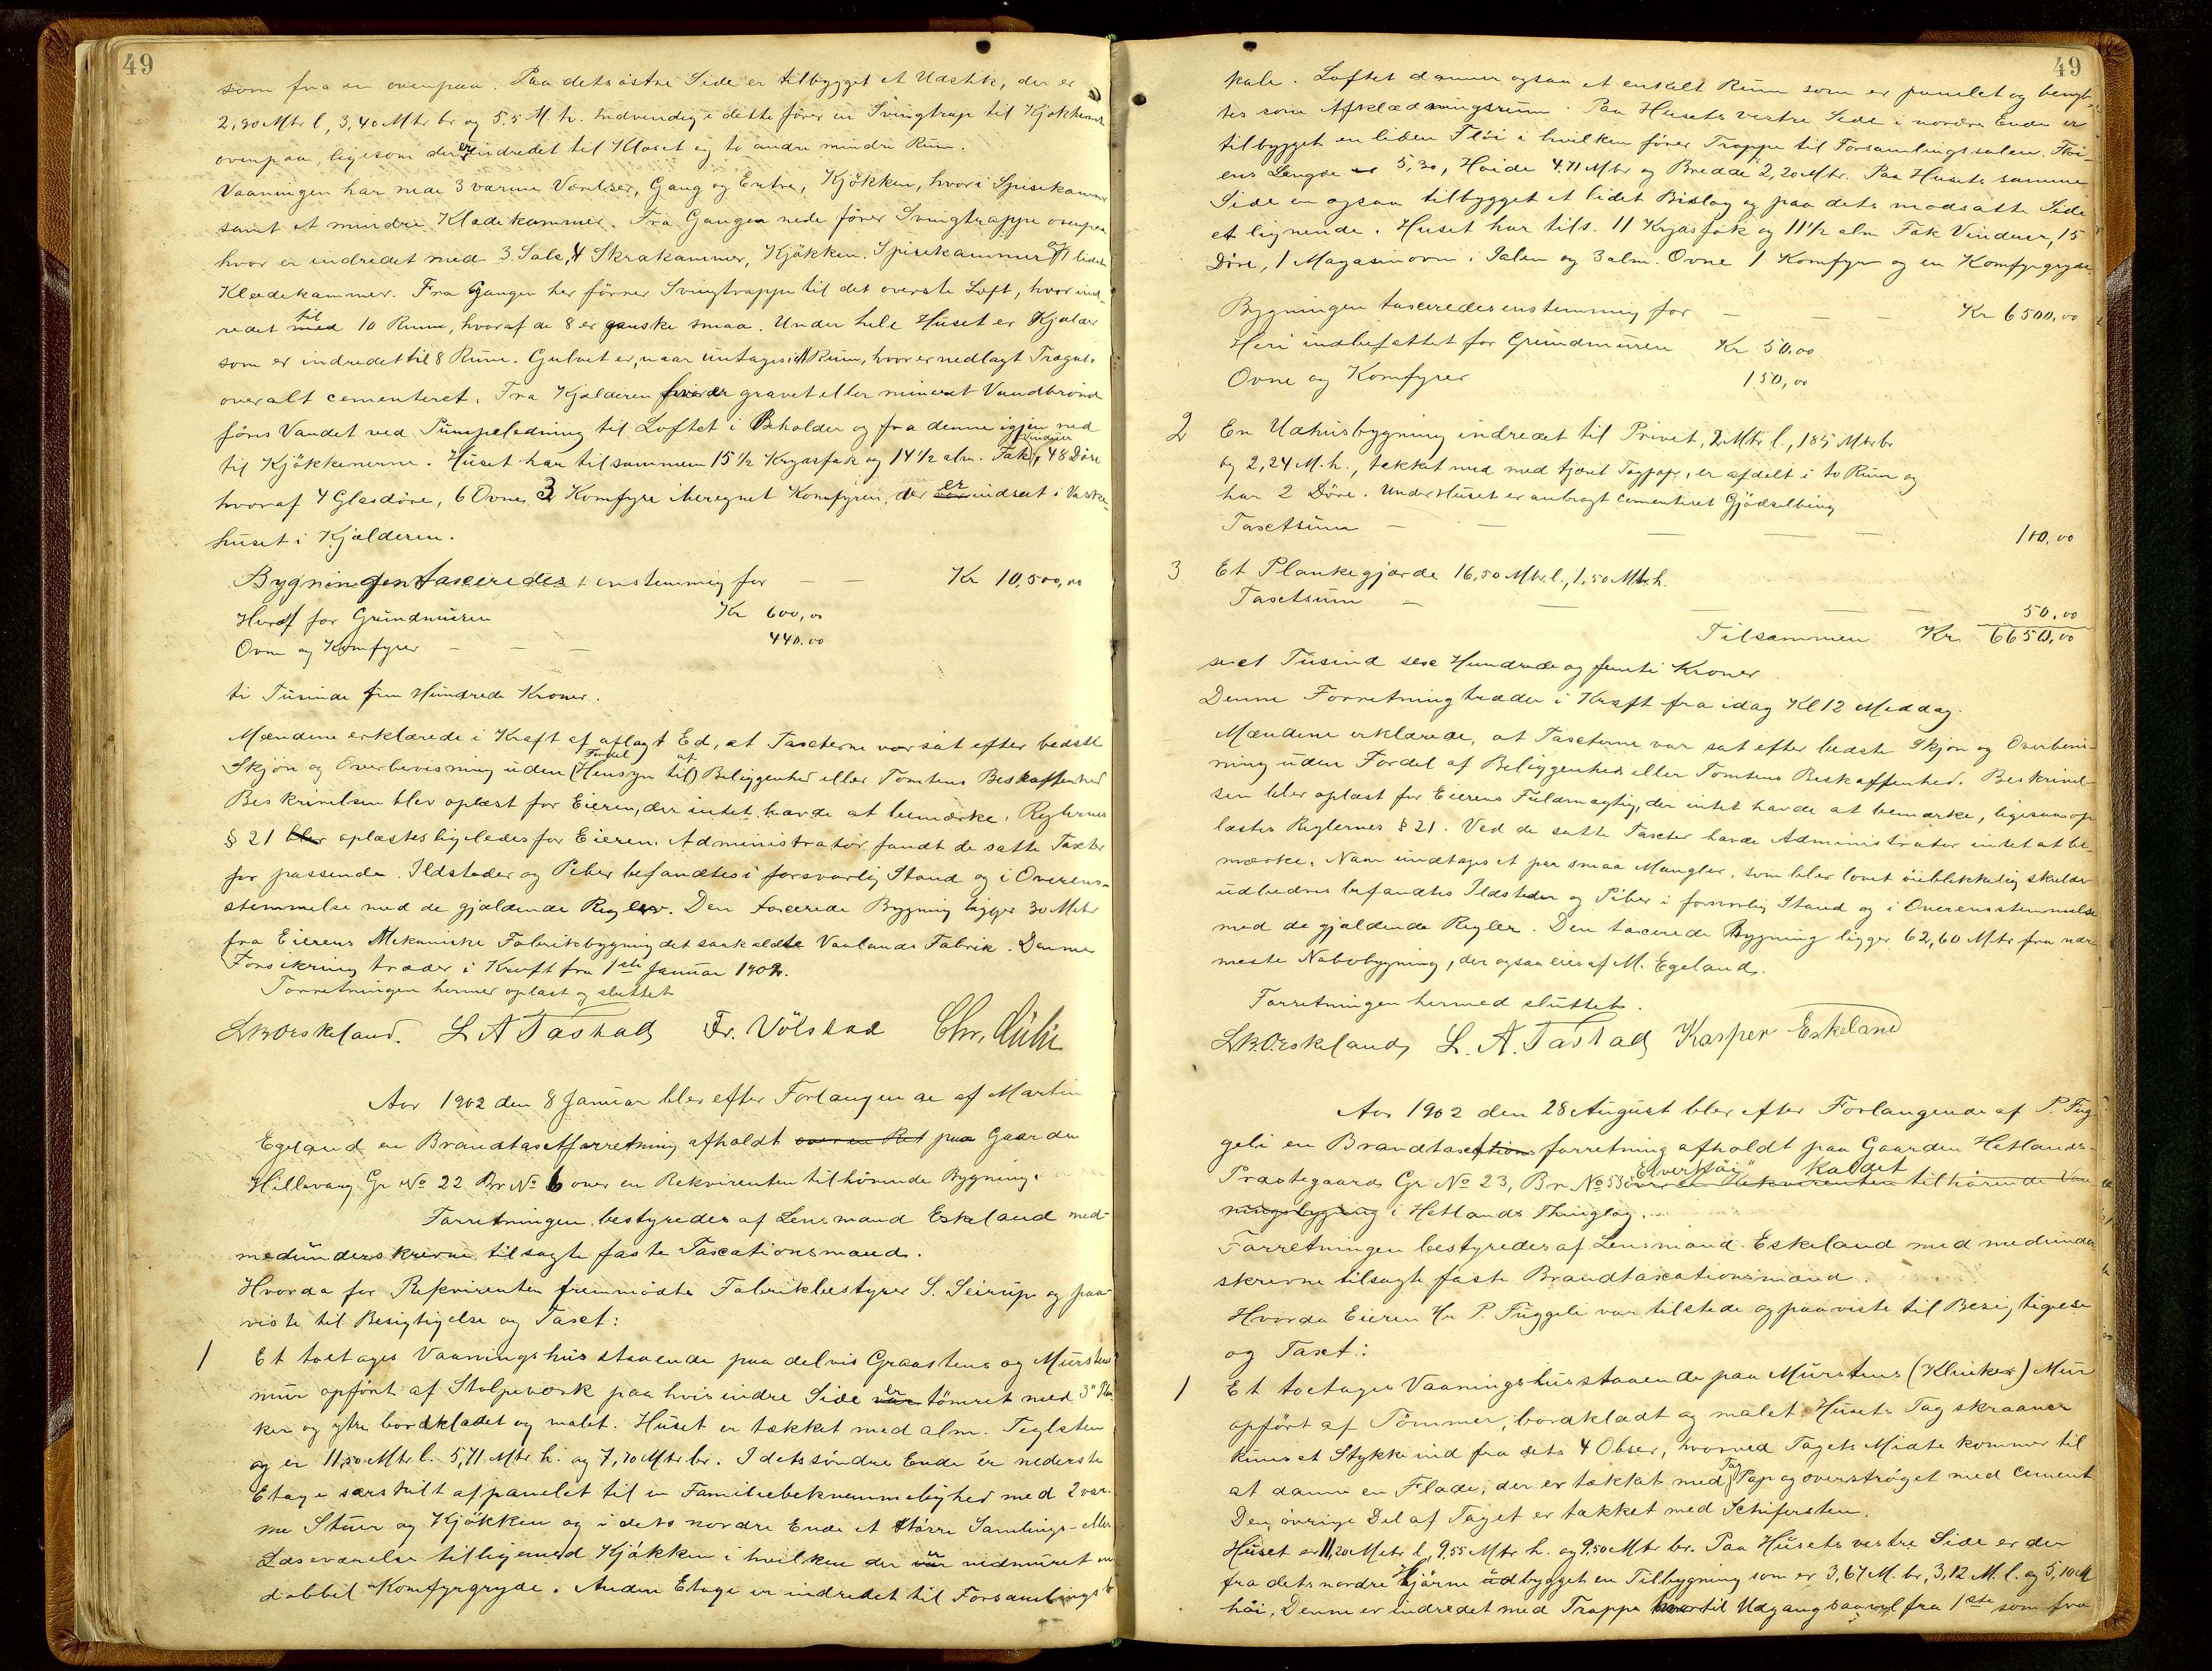 49
som fra en ovenpaa. Paa dets östre Side er tilbygget et Udstik, der er
2,90 Mtr l, 3,40 Mtr br og 5.5 M. h. Indvendig i dette förer en Svingtrap til Kjökkenet
ovenpaa, ligesom der er indredet til Kloset og to andre mindre Rum.
Vaaningen har nede 3 varme Værelser, Gang og Entre, Kjökken, hvori Spisekammer
samt et mindre Klædekammer. Fra Gangen nede förer Svingtrappe ovenpaa
hvor er indredet med 3 Sale, 4 Skraakammer, Kjökken, Spisekammer og 1 lidet
Klædekammer. Fra Gangen her förer Svingtrappe til det överste Loft, hvor ind-
redet med til 10 Rum, hvoraf de 8 er ganske smaa. Under hele Huset er Kjælder
som er indredet til 8 Rum. Gulvet er, naar untages i 1 Rum, hvor er nedlagt Trægul.
overalt cementeret. Fra Kjælderen hvor er gravet eller mineret Vandbrönd
föres Vandet ved Pumpeledning til Loftet i Beholder og fra denne igjen ned
til Kjökkenerne. Huset har tilsammen 15 1/2 Krydsfak og 14 1/2 alm. Fak Vinduer, 48 Döre
hvoraf 4 Glasdöre, 6 Ovne, 3 Komfyre iberegnet Komfyren, der var er indsat i Vaske-
huset i Kjælderen.
Bygningen taxeredes enstemmig for — — Kr 10,500,00
Heraf for Grundmuren Kr 600,00
Ovne og Komfyrer — — — 440.00
ti Tusinde fem Hundrede Kroner.
Mændene erklærede i Kraft af aflagt Ed, at Taxterne var sat efter bedste
Skjön og Overbevisning uden (Hensyn til) Fordel af Beliggenhed eller Tomtens Beskaffenhed
Beskrivelsen blev oplæst for Eieren, der intet havde at bemærke. Reglernes
§ 21 blev oplæstes ligeledes for Eieren. Administrator fandt de satte Taxter
for passende. Ildsteder og Piber befandtes i forsvarlig Stand og i Overens-
stemmelse med de gjældende Regler. Den taxerede Bygning ligger 30 Meter
fra Eierens Mekaniske Fabrikbygning det saakaldte Vaalands Fabrik. Denne
Forsikring træder i Kraft fra 1ste Januar 1902.
Forretningen hermed oplæst og sluttet
L A Tastad Fr. Völstad
Aar 1902 den 8 Januar blev efter Forlangende af Martin
Egeland en Brandtaxtforretning afholdt over en Ret paa Gaarden
Hillevaag Gr No 22 Br No 6 over en Rekvirenten tilhörende Bygning.
Forretningen bestyredes af Lensmand Eskeland med
medunderskrevne tilsagte faste Taxationsmænd.
Hvorda for Rekvirenten fremmödte Fabrikbestyrer S. Seirup og paa-
viste til Besigtigelse og Taxt:
1 Et toetages Vaaningshus staaende paa delvis Graastens og Murstens
mur opfört af Stolpeværk paa hvis indre Side var er tömret med 3" Plan
ker og ytre bordklædet og malet. Huset er tækket med alm. Teglsten
og er 11,50 Mtr l. 5,71 Mtr. h. og 7,70 Mtr. br. I dets söndre Ende er nederste
Etage særskilt afpanelet til en Familiebekvemmelighed med 2 var-
me Stuer og Kjökken og i dets nordre Ende et större Samlings- eller
Læseværelse tilligemed Kjökken i hvilken der var er nedmuret en
dobbel Komfyrgryde. Anden Etage er indredet til Forsamlings
49
kale. Loftet danner ogsaa et enkelt Rum som er panelet og benyt-
tes som Afklædningsrum. Paa Husets vestre Side i nordre Ende er
tilbygget en liden Flöi i hvilken förer Trappe til Forsamlingssalen. Flöi-
ens Længde er 5,30, Höide 4.71 Mtr og Bredde 2,20 Mtr. Paa Husets samme
Side er ogsaa tilbygget et lidet Bislag og paa dets modsatte Side
et lignende. Huset har tils. 11 Krydsfak og 11 1/2 alm Fak Vinduer, 15
Döre, 1 Magasinovn i Salen og 3 alm. Ovne 1 Komfyr og en Komfyrgryde.
Bygningen taxeredes enstemmig for — — — Kr 6500,00
Heri indbefattet for Grundmuren Kr 50.00
Ovne og Komfyrer 150,00
2 En Udhusbygning indredet til Privet, 2 Mtr l., 1,85 Mtr br
og 2,24 M. h., tækket med med tjæret Tagpap, er afdelt i to Rum og
har 2 Döre. Under Huset er anbragt cementeret Gjödselbing
Taxtsum — — — — — 100,00
3 Et Plankegjærde 16,50 Mtr. l., 1,50 Mtr. h.
Taxtsum — — — — — 50,00
Tilsammen Kr 6650,00
sext Tusind sex Hundrede og femti Kroner
Denne Forretning træder i Kraft fra idag Kl 12 Middag.
Mændene erklærede, at Taxterne var sat efter bedste Skjön og Overbevis-
ning uden Fordel af Beliggenhed eller Tomtens Beskaffenhed. Beskrivel-
sen blev oplæst for Eierens Fuldmægtig, der intet havde at bemærke, ligesaa op
læstes Reglernes § 21. Ved de satte Taxter havde Administrator intet at be-
mærke. Naar undtages et par smaa Mangler, som blev lovet öieblikkelig skulde
udbedres befandtes Ildsteder og Piber i forsvarlig Stand og i Overensstemmelse
med de gjældende Regler. Den taxerede Bygning ligger 62,60 Mtr fra nær-
meste Nabobygning, der ogsaa eies af M. Egeland.
Forretningen hermed sluttet.
L. A. Tastad Kasper Eskeland
Aar 1902 den 28 August blev efter Forlangende af P. Fug-
geli en Brandtaxtions forretning afholdt paa Gaarden Hetlands-
Præstegaard Gr No 23, Br. No 53 over en Rekvirenten tilhörende Vaa "Elverhöi" kaldet
ningsbygning i Hetlands Thinglag.
Forretningen bestyredes af Lensmand Eskeland med medunder
skrevne tilsagte faste Brandtaxationsmænd.
Hvorda Eieren Hr P. Fuggeli var tilstede og paaviste til Besigtigelse
og Taxt:
1 Et toetages Vaaningshus staaende paa Murstens (Klinker) Mur
opfört af Tömmer, bordklædt og malet. Husets Tag skraaner
kun et Stykke ind fra dets 4 Obser, hvorved Tagets Midte kommer til
at danne en Flade, der er tækket med Tag Pap og overströget med Cement
Den övrige Del af Taget er tækket med Schifersten.
Huset er 11,20 Meter l, 9,55 Mtr h. og 9,50 Mtr br. Paa Husets vestre Side er der
fra dets nordre Hjörne udbygget en Tilbygning som er 3,67 M. br, 3,12 M. l. og 5,10 M
höi. Denne er indredet med Trappe til Udgang saavel fra 1ste som fra